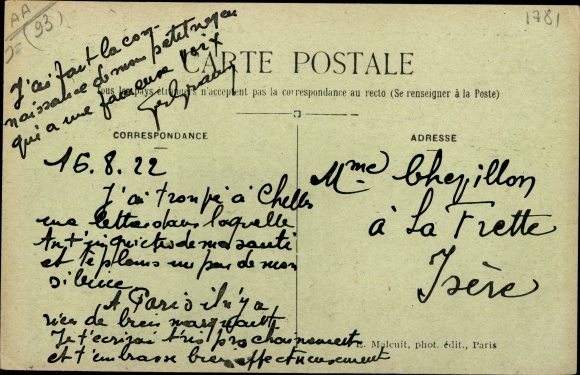 AA
(93)
1781
J'ai fait la con-
naissance de mon petit neveu
qui a une fameuse voix
CARTE POSTALE
Tous les pays étrangers n'acceptent pas la correspondance au recto (Se renseigner à la Poste)
CORRESPONDANCE
ADRESSE
16.8.22
J'ai trouvé à Chelles
une lettre dans laquelle
tu t'inquiètes de ma santé
et te plains un peu de mon
silence
A Paris il n'y a
rien de bien marquant
Je t'écrirai très prochainement
et t'embrasse bien affectueusement
Mme Chepillon
à La Frette
Isère
Malcuit, phot. édit., Paris